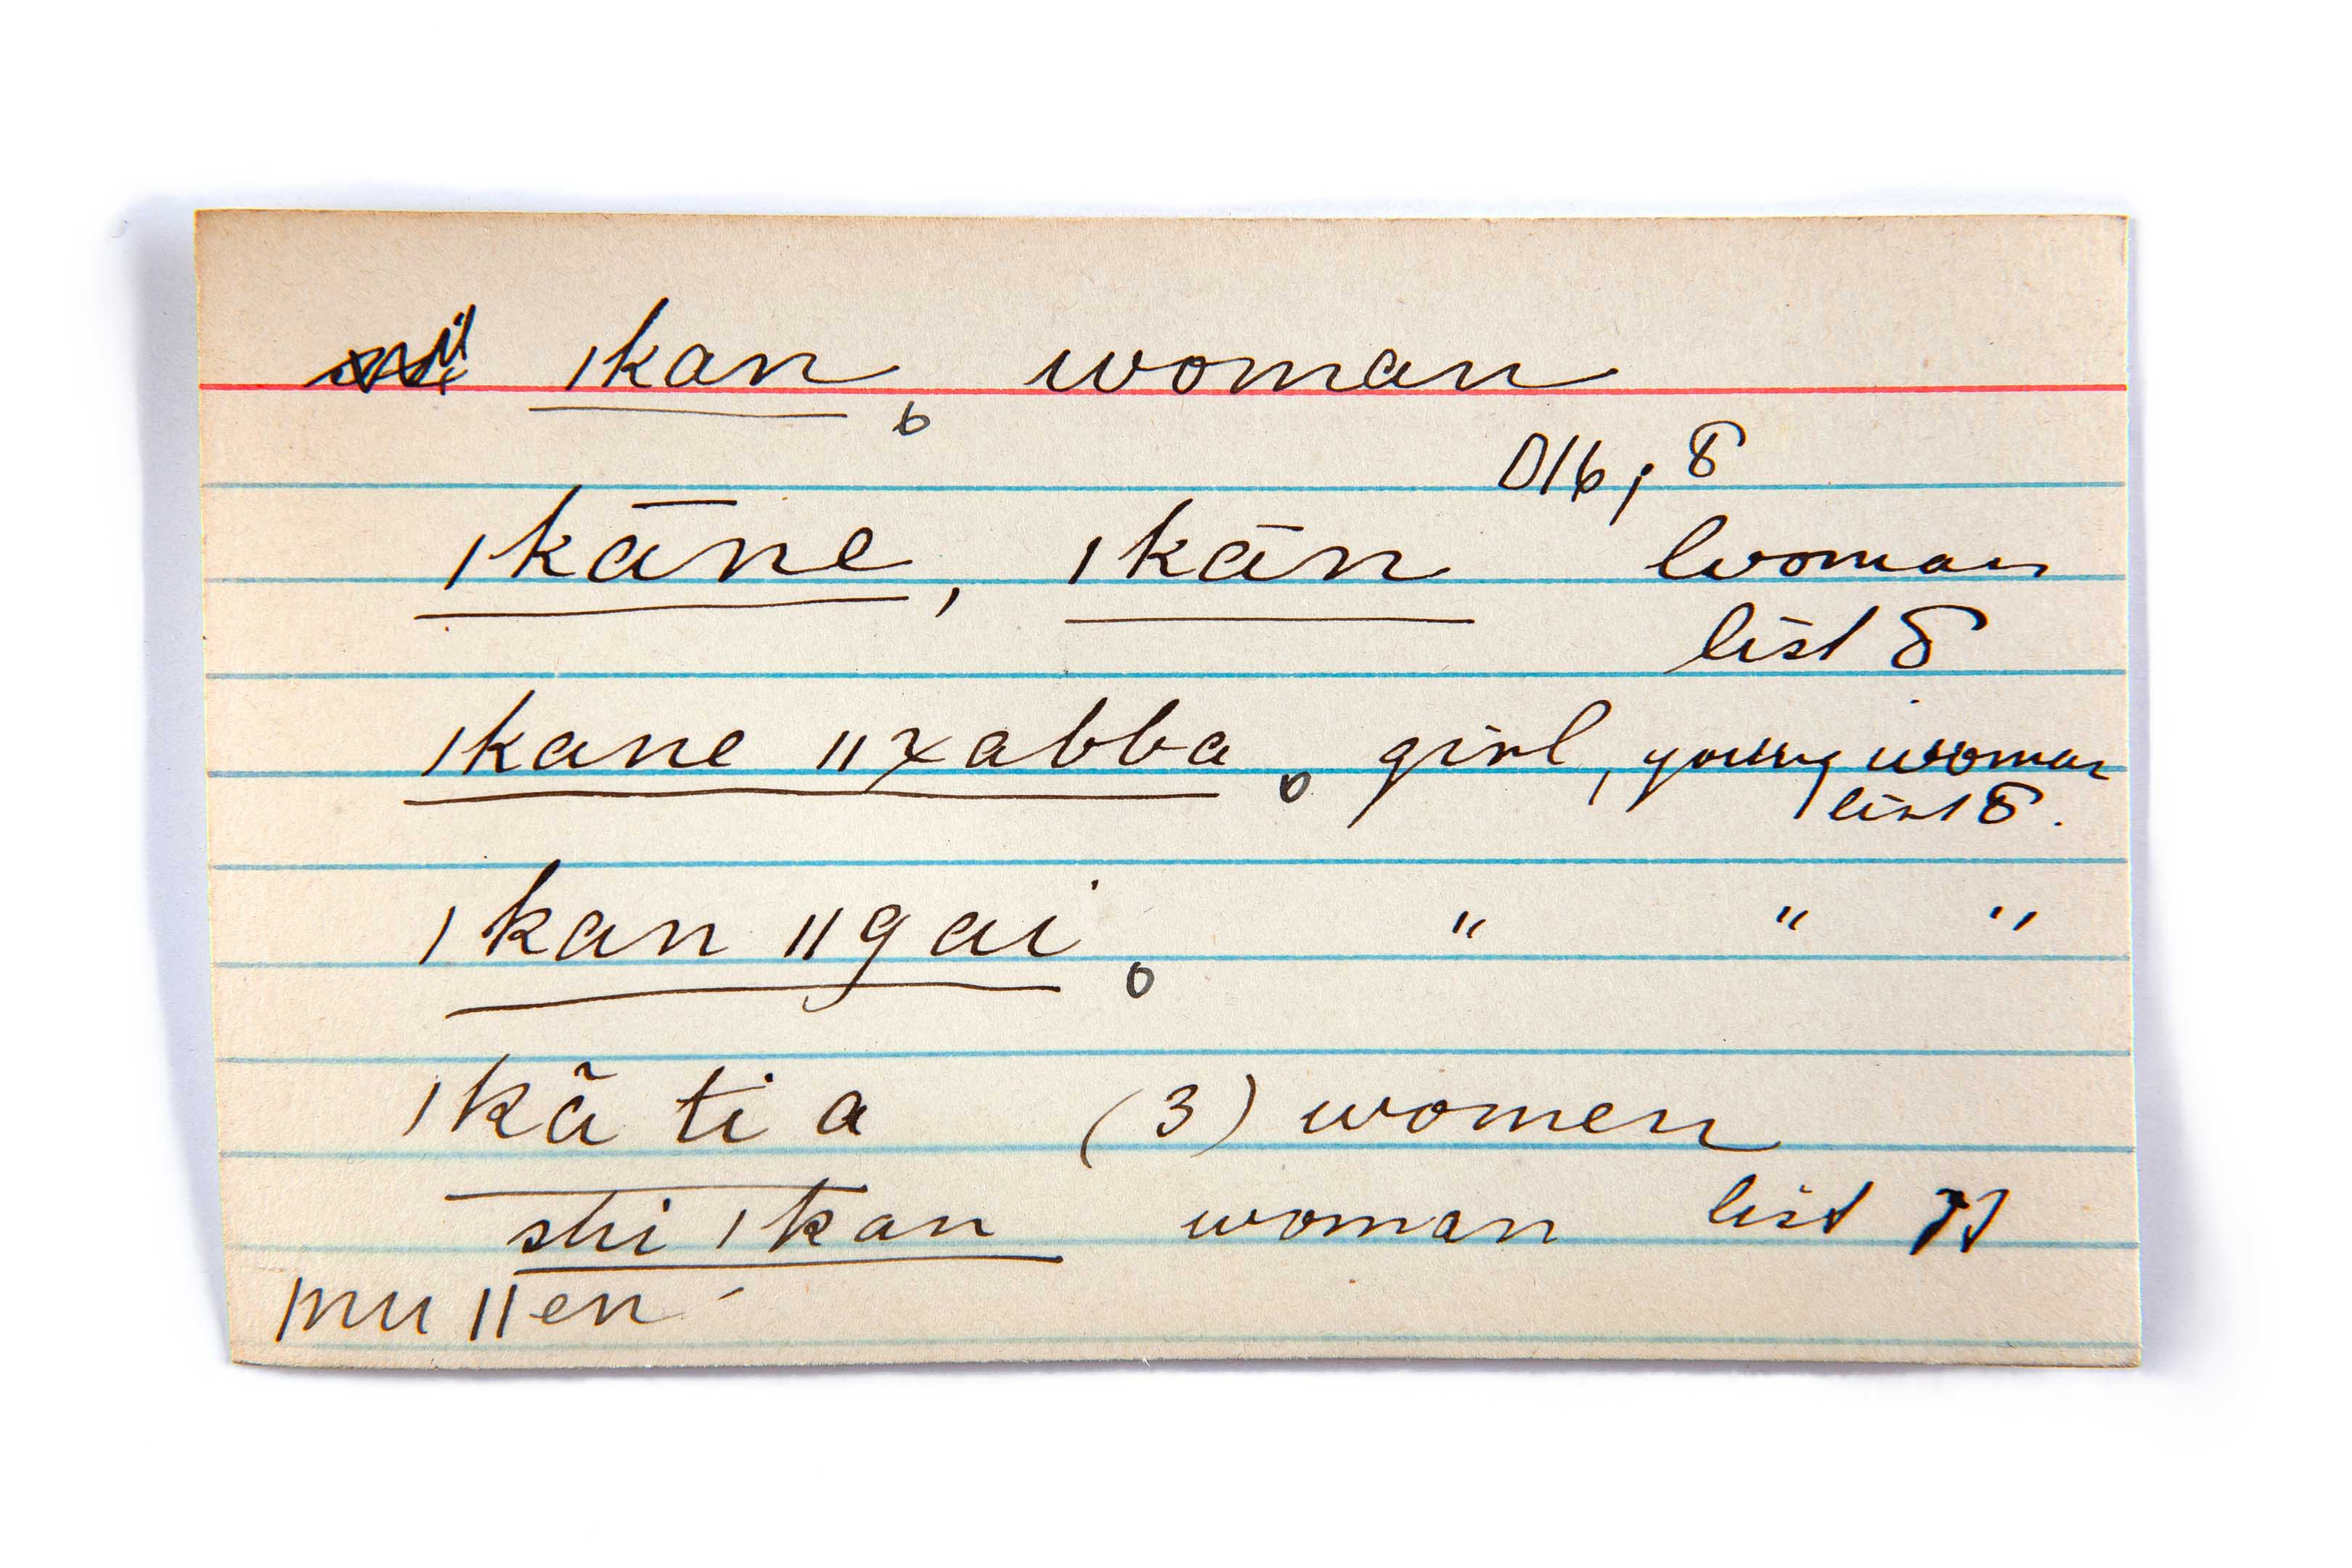 ǀkan, woman
D16, 8
ǀkāne, ǀkān woman
list 8
ǀkane ǁxabba, girl, young woman
list 8.
ǀkan ǁgai, " " "
ǀkã ti a (3) women
shi ǀkan woman list
ǀnu ǁen